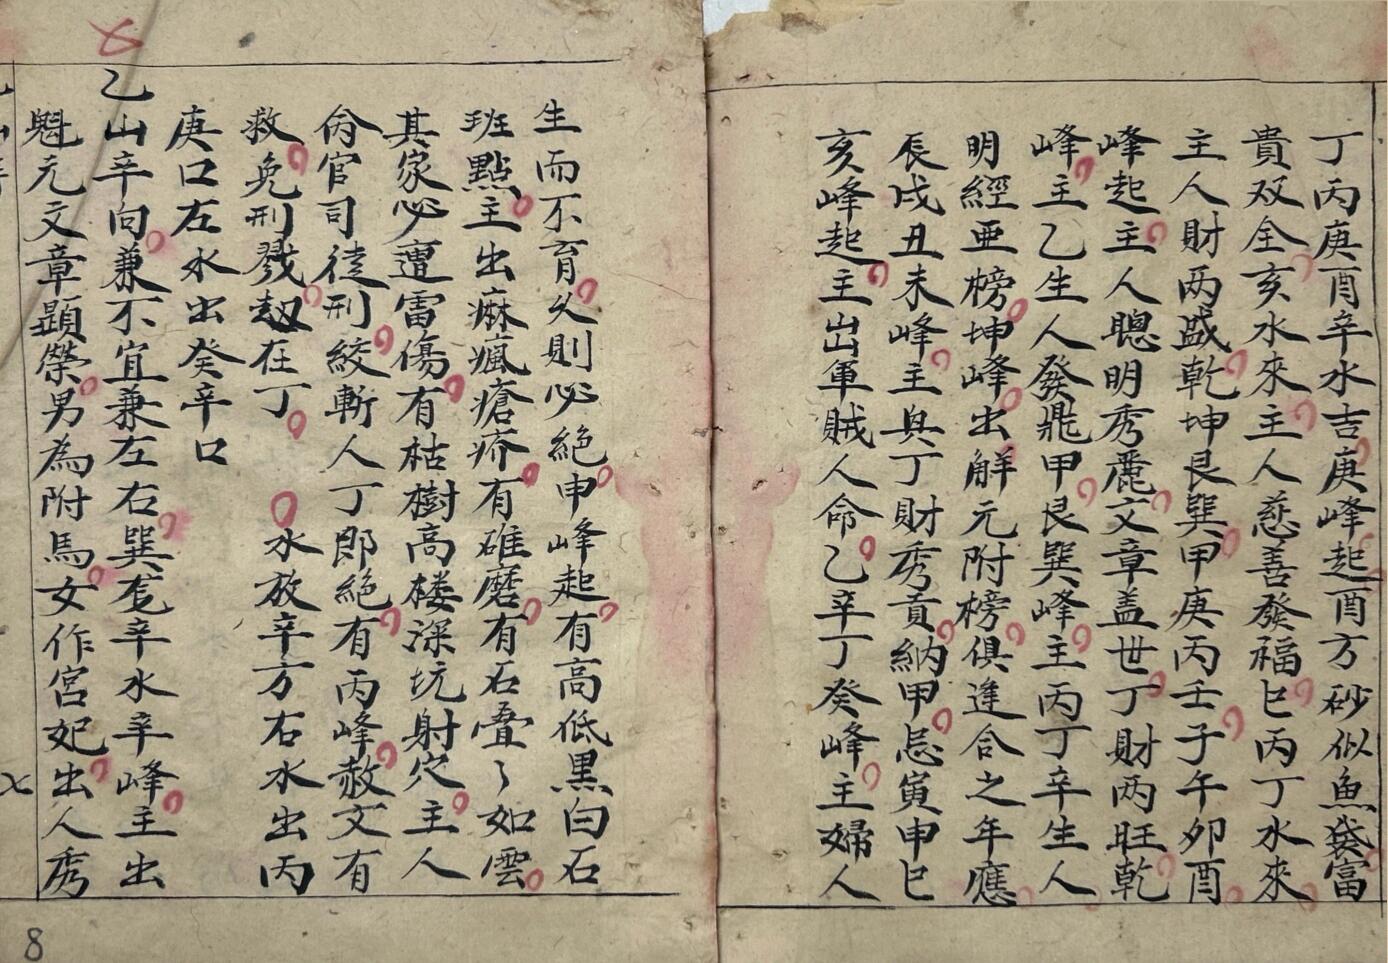 丁丙庚酉辛水吉庚峰起酉方砂似魚袋富
貴双全亥水來主人慈善發福巳丙丁水來
主人財両盛乾坤艮巽甲庚丙壬子午卯酉
峰起主人聰明秀麗文章盖世丁財両旺乾
峰主乙生人發鼎甲艮巽峰主丙丁辛生人
明經亜榜坤峰出觧元附榜俱進合之年應
辰戌丑未峰主與丁財秀貢納甲忌寅申巳
亥峰起主出軍賊人命乙辛丁癸峰主婦人
生而不育久則必絕申峰起有高低黒白石
班點主出痳瘋瘡疥有碓磨有石疊〻如雲
其家必遭雷傷有枯樹高楼深坑射穴主人
尙官司徒刑絞斬人丁即絕有丙峰赦文有
救免刑戮刼在丁 水放辛方右水出丙
庚口左水出癸辛口
乙山辛向兼不宜兼左右巽辛水辛峰主出
魁元文章顕榮男為附馬女作宮妃出人秀
8